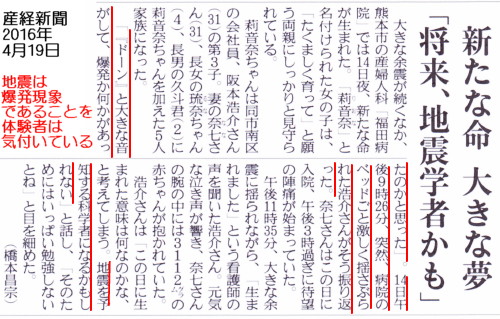 新たな命 大きな夢
「将来、地震学者かも」
大きな余震が続くなか、
熊本市の産婦人科「福田病
院」では14日夜、新たな命
が生まれた。「莉音奈」と
名付けられた女の子は、
「たくましく育って」と願
う両親にしっかりと見守ら
れている。
莉音奈ちゃんは同市南区
の会社員、阪本浩介さん
(31)の第3子。妻の奈七さ
ん(31)、長女の琉奈ちゃん
(4)、長男の久斗君(2)に
莉音奈ちゃんを加えた5人
家族になった。
「『ドーン』と大きな音
がして、爆発か何かがあっ
たのかと思った」。14日午
後9時26分、突然、病院の
ベッドごと激しく揺さぶら
れた浩介さんがそう振り返
った。奈七さんはこの日に
入院、午後3時過ぎに待望
の陣痛が始まっていた。
午後11時35分、大きな余
震に揺られながら、「生ま
れました」という看護師の
声を聞いた浩介さん。元気
な泣き声が響き、奈七さん
の腕の中には3112㌘の
赤ちゃんが抱かれていた。
浩介さんは「この日に生
まれた意味は何なのかな、
と考えてしまう。地震を予
知する科学者になるかもし
れない」と話し、「そのた
めにはいっぱい勉強しない
とね」と目を細めた。
(橋本昌宗)
産経新聞
2016年
4月19日
地震は
爆発現象
であることを
体験者は
気付いている